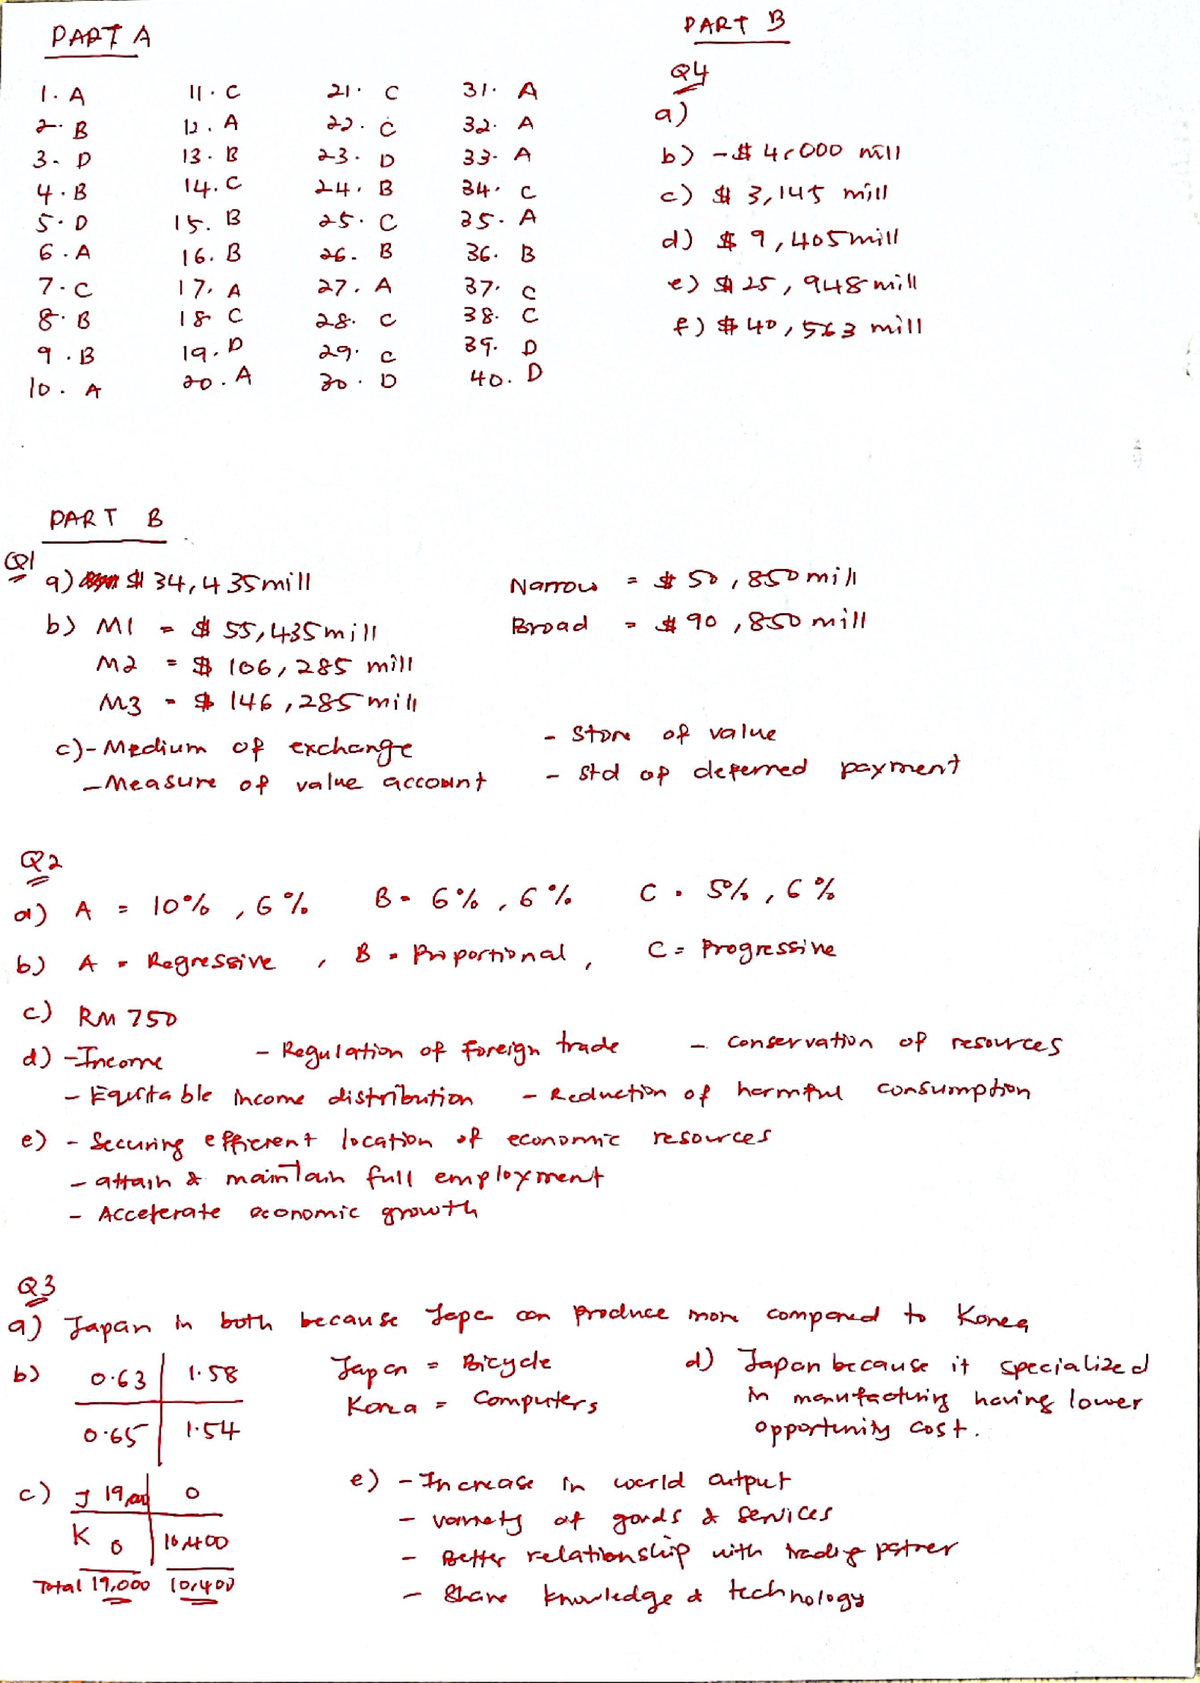 PART A
1. A
2. B
3. D
4. B
5. D
6. A
7. C
8. B
9. B
10. A
11. C
12. A
13. B
14. C
15. B
16. B
17. A
18 C
19. D
20. A
21. C
22. C
23. D
24. B
25. C
26. B
27. A
28. C
29. C
30. D
31. A
32. A
33. A
34. C
35. A
36. B
37. C
38. C
39. D
40. D
PART B
Q4
a)
b) -$ 4,000 mill
c) $ 3,145 mill
d) $ 9,405 mill
e) $ 25,948 mill
f) $ 40,563 mill
PART B
Q1
a) $ 34,435 mill
b) M1 = $ 55,435 mill
M2 = $ 106,285 mill
M3 = $ 146,285 mill
Narrow = $ 50,850 mill
Broad = $ 90,850 mill
c) - Medium of exchange
- Measure of value account
- Store of value
- Std of deferred payment
Q2
a) A = 10%, 6% B = 6%, 6% C = 5%, 6%
b) A = Regressive, B = Proportional, C = Progressive
c) RM 750
d) - Income - Regulation of foreign trade - Conservation of resources
- Equitable income distribution - Reduction of harmful consumption
e) - Securing efficient location of economic resources
- attain & maintain full employment
- Accelerate economic growth
Q3
a) Japan in both because Japa can produce more compared to Korea
b) 0.63 1.58
0.65 1.54
Japan = Bicycle
Korea = Computers
c) J 19,000 0
K 0 10,400
Total 19,000 10,400
d) Japan because it specialized
in manufacturing having lower
opportunity cost.
e) - Increase in world output
- variety of goods & services
- Better relationship with trading patner
- Share knowledge & technology